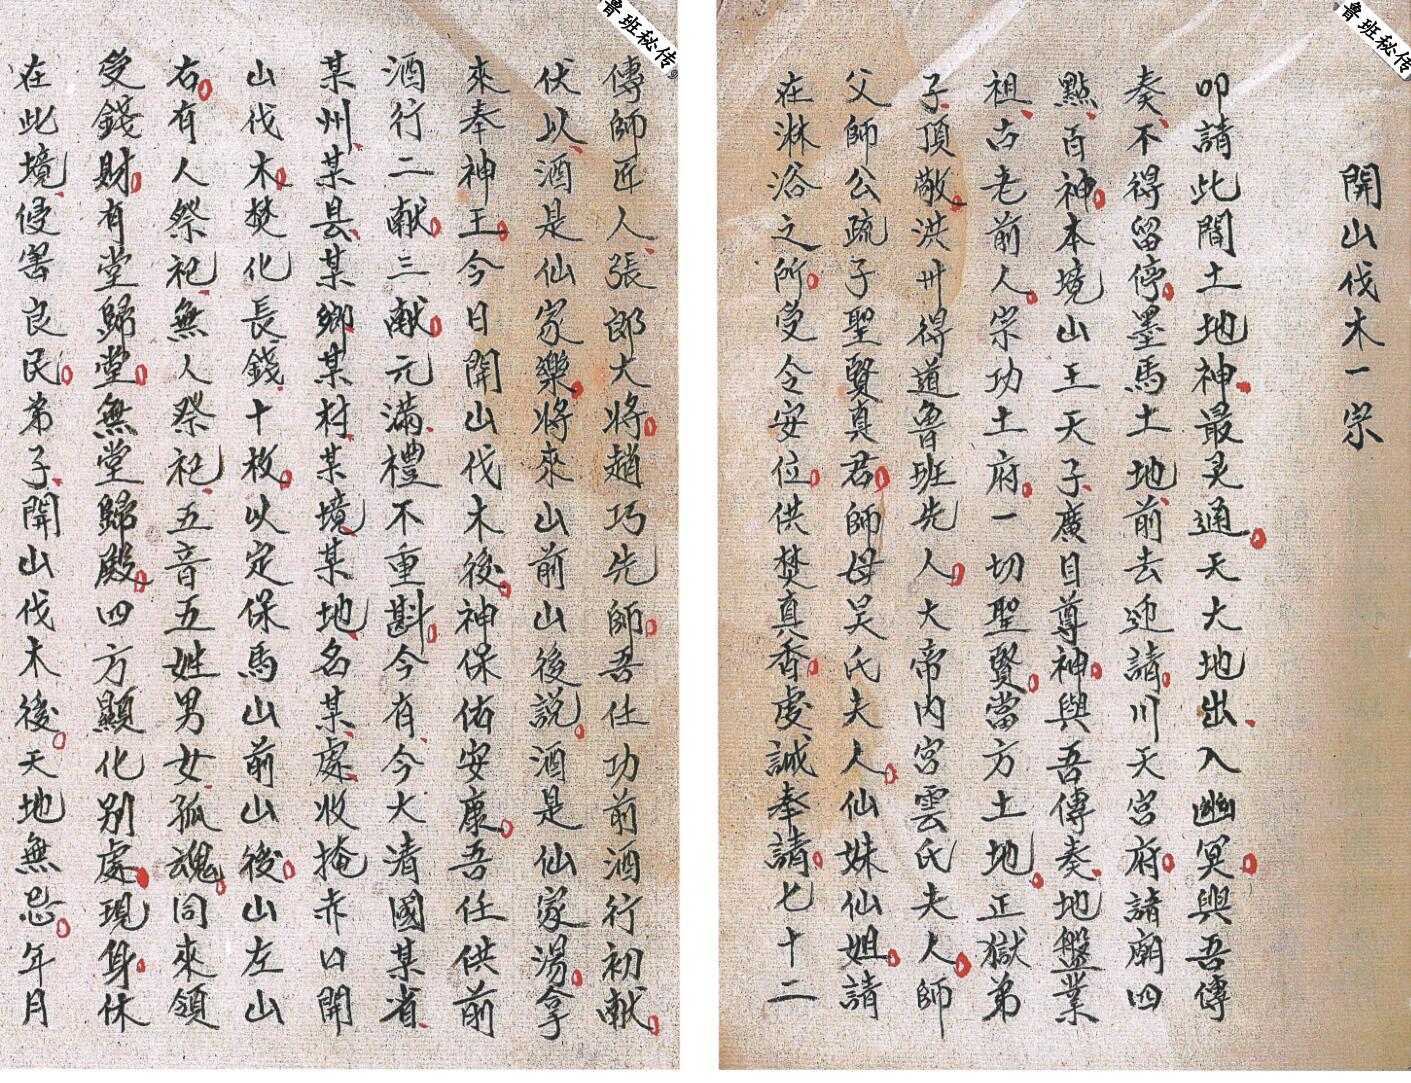 鲁班秘传
開山伐木一宗
叩請此間土地神最灵通天大地出入幽冥與吾傳
奏不得留停墨馬土地前去迎請川天宫府諸廟四
點百神本境山王天子廣目尊神與吾傳奏地盤業
祖古老前人宗功土府一切聖賢當方土地正獄弟
子頂敬洪卅得道魯班先人大帝内宫雲氏夫人師
父師公疏子聖賢真君師母吴氏夫人仙妹仙姐請
在淋浴之所受令安位供焚真香虔誠奉請七十二
鲁班秘传
傳師匠人張郎大将趙巧先師吾仕功前酒行初献
伏以酒是仙家樂将來山前山後説酒是仙家湯拿
來奉神王今日開山伐木後神保佑安康吾任供前
酒行二献三献元滿禮不重斟今有今大清國某省
某州某县某鄉某村某境某地名某處收掩赤口開
山伐木焚化長錢十枚以定保馬山前山後山左山
右有人祭祀無人祭祀五音五姓男女孤魂同來領
受錢財有堂歸堂無堂歸殿四方顯化別處現身休
在此境侵害良民弟子開山伐木後天地無忌年月